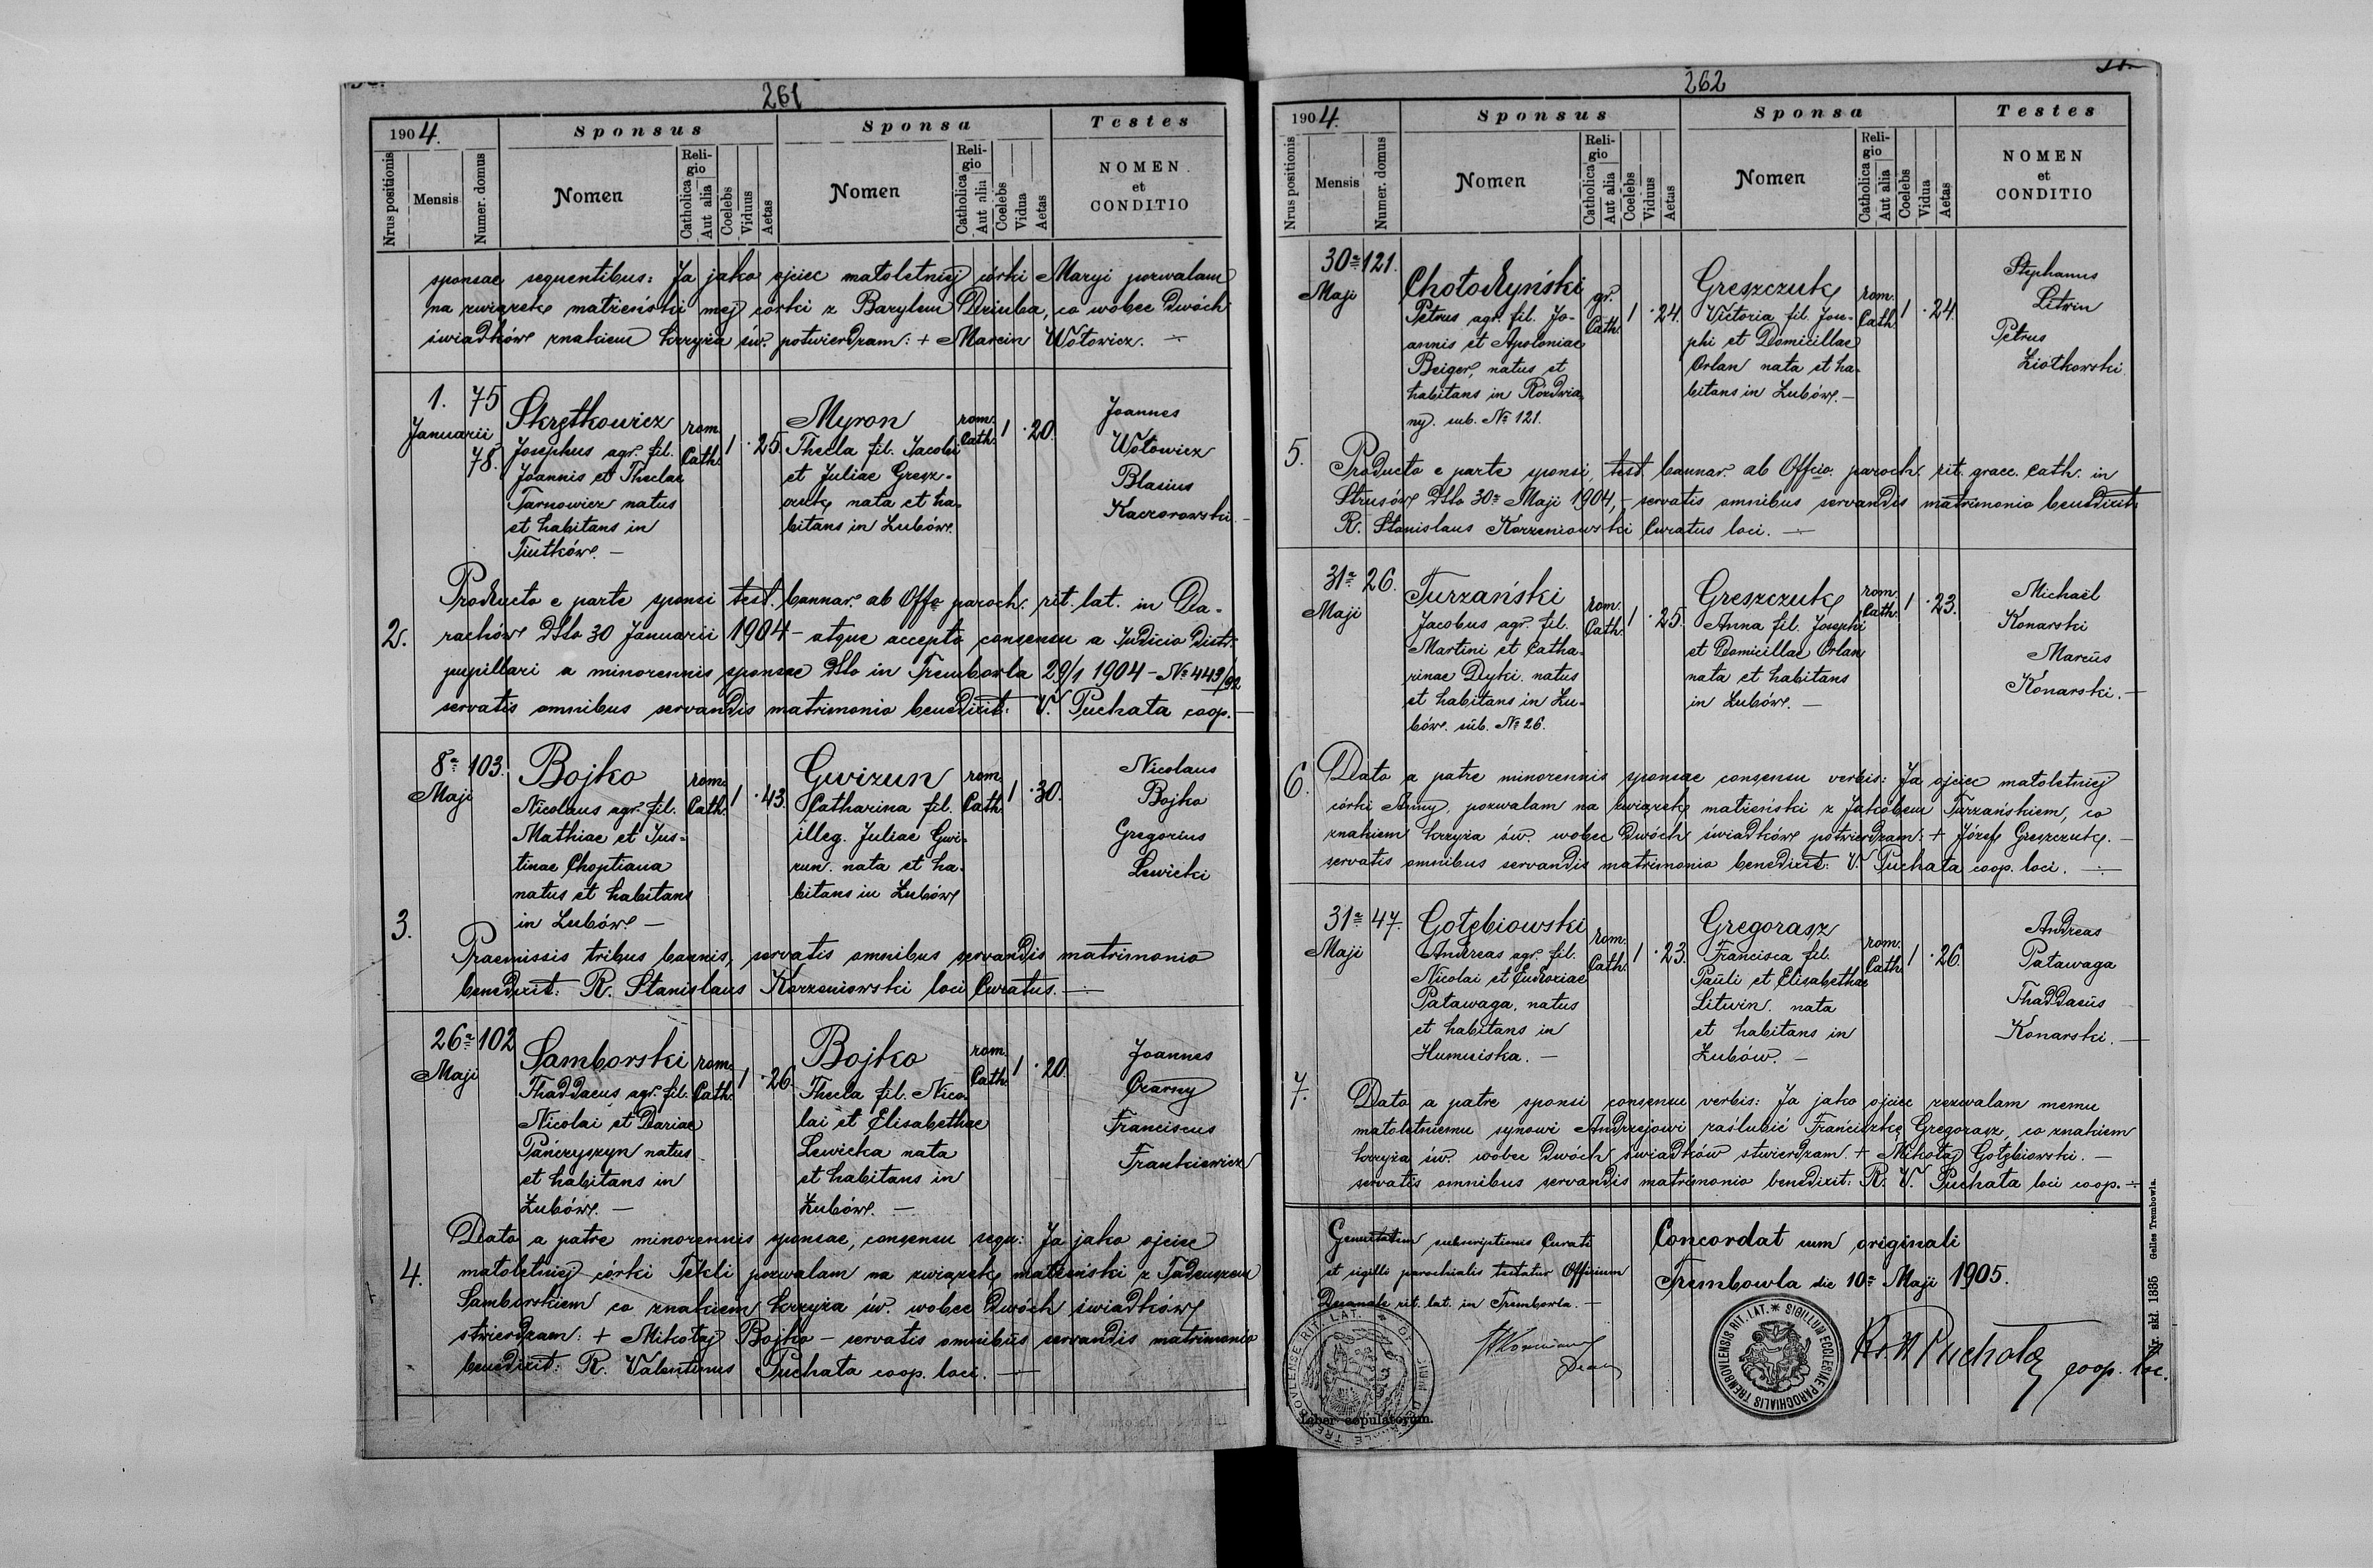 261
1904.
Sponsus
Sponsa
Testes
Nrus positionis
Mensis
Numer. domus
Nomen
Religio
Catholica
Aut alia
Coelebs
Viduus
Aetas
Nomen
Religio
Catholica
Aut alia
Coelebs
Vidua
Aetas
NOMEN
et
CONDITIO
sponsae sequentibus: Ja jako ojciec małoletniej córki Maryi pozwalam
na związek małżeński mej córki z Bazylem Dziuba, co wobec dwóch
świadków znakiem krzyża św. potwierdzam: + Marcin Wołowicz. —
2.
1. Januarii
75
78.
Skrętkowicz
Josephus agr. fil.
Joannis et Theclae
Tarnowicz natus
et habitans in
Tiutków. —
rom. Cath. 1 · 25.
Myron
Thecla fil. Jacobi
et Juliae Gresz-
czuk nata et ha-
bitans in Łubów.
rom. Cath. 1 · 20.
Joannes
Wołowicz
Blasius
Kaczorowski. —
Producto e parte sponsi test. bannar. ab Offo paroch. rit. lat. in Da-
rachów ddto 30 Januarii 1904 — atque accepto consensu a Judicio Distr.
pupillari a minorennis sponsae ddto in Trembowla 29/1 1904 — No 443/92
servatis omnibus servandis matrimonio benedixit: V. Puchała coop. —
3.
8a Maji
103.
Bojko
Nicolaus agr. fil.
Mathiae et Jus-
tinae Choptiana
natus et habitans
in Łubów. —
rom. Cath. 1 · 43.
Gwizun
Catharina fil.
illeg. Juliae Gwi-
zun. nata et ha-
bitans in Łubów
rom. Cath. 1 · 30.
Nicolaus
Bojko
Gregorius
Lewicki
Praemissis tribus bannis, servatis omnibus servandis matrimonio
benedixit: R. Stanislaus Korzeniowski loci Curatus. —
4.
26a Maji
102
Samborski
Thaddaeus agr. fil.
Nicolai et Dariae
Pańczyszyn natus
et habitans in
Łubów. —
rom. Cath. 1 · 26.
Bojko
Thecla fil. Nico-
lai et Elisabethae
Lewicka nata
et habitans in
Łubów. —
rom. Cath. 1 · 20.
Joannes
Czarny
Franciscus
Frankiewicz
Dato a patre minorennis sponsae, consensu sequ: Ja jako ojciec
małoletniej córki Tekli pozwalam na związek małżeński z Tadeuszem
Samborskiem co znakiem krzyża św. wobec dwóch świadków
stwierdzam: + Mikołaj Bojko — servatis omnibus servandis matrimonio
benedixit: R. Valentinus Puchała coop. loci. —
262
1904.
Sponsus
Sponsa
Testes
Nrus positionis
Mensis
Numer. domus
Nomen
Religio
Catholica
Aut alia
Coelebs
Viduus
Aetas
Nomen
Religio
Catholica
Aut alia
Coelebs
Vidua
Aetas
NOMEN
et
CONDITIO
5.
30a Maji
121.
Chołodyński
Petrus agr. fil. Jo-
annis et Apoloniae
Beiger, natus et
habitans in Rozdwia-
ny. sub. No 121.
gr. Cath. 1 · 24.
Greszczuk
Victoria fil. Jose-
phi et Domicillae
Orlan nata et ha-
bitans in Łubów. —
rom. Cath. 1 · 24.
Stephanus
Litwin
Petrus
Ziołkowski.
Producto e parte sponsi, test. bannar. ab Officio. paroch. rit. graec. Cath. in
Strusów ddto 30a Maji 1904, — servatis omnibus servandis matrimonio benedixit:
R. Stanislaus Korzeniowski Curatus loci. —
6.
31a Maji
26.
Turzański
Jacobus agr. fil.
Martini et Catha-
rinae Dyki. natus
et habitans in Łu-
bów. sub. No 26.
rom. Cath. 1 · 25.
Greszczuk
Anna fil. Josephi
et Domicillae Orlan
nata et habitans
in Łubów. —
rom. Cath. 1 · 23.
Michaël
Konarski
Marcus
Konarski. —
Dato a patre minorennis sponsae consensu verbis: Ja ojciec małoletniej
córki Anny, pozwalam na związek małżeński z Jakóbem Turzańskiem, co
znakiem krzyża św. wobec dwóch świadków potwierdzam: + Józef Greszczuk. —
servatis omnibus servandis matrimonio benedixit: V. Puchała coop. loci. —
7.
31a Maji
47.
Gołębiowski
Andreas agr. fil.
Nicolai et Eudoxiae
Patawaga, natus
et habitans in
Humniska. —
rom. Cath. 1 · 23.
Gregorasz
Francisca fil.
Pauli et Elisabethae
Litwin. nata
et habitans in
Łubów. —
rom. Cath. 1 · 26.
Andreas
Patawaga
Thaddaeus
Konarski. —
Dato a patre sponsi consensu verbis: Ja jako ojciec zezwalam memu
małoletniemu synowi Andrzejowi zaślubić Franciszkę Gregorasz, co znakiem
krzyża św. wobec dwóch świadków stwierdzam. + Mikołaj Gołębiowski. —
servatis omnibus servandis matrimonio benedixit: R. V. Puchała loci coop. —
Genuitatem subscriptionis Curati
et sigilli parochialis testatur Officium
Decanale rit. lat. in Trembowla. —
Concordat cum originali
Trembowla die 10a Maji 1905.
SIGILLUM ECCLESIAE PAROCHIALIS TREMBOVLENSIS RIT. LAT.
R. V. Puchała
coop. loc.
Liber copulatorum.
Nr. skł. 1885 Gelles Trembowla.